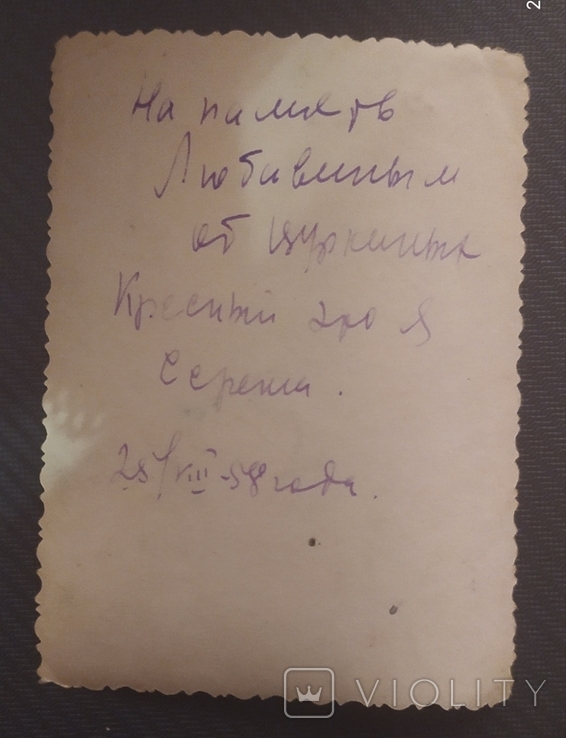 2
На память
Любавиным
от Цуркиных
Красный это я
Сережа.
28/VIII-58 года.
VIOLITY